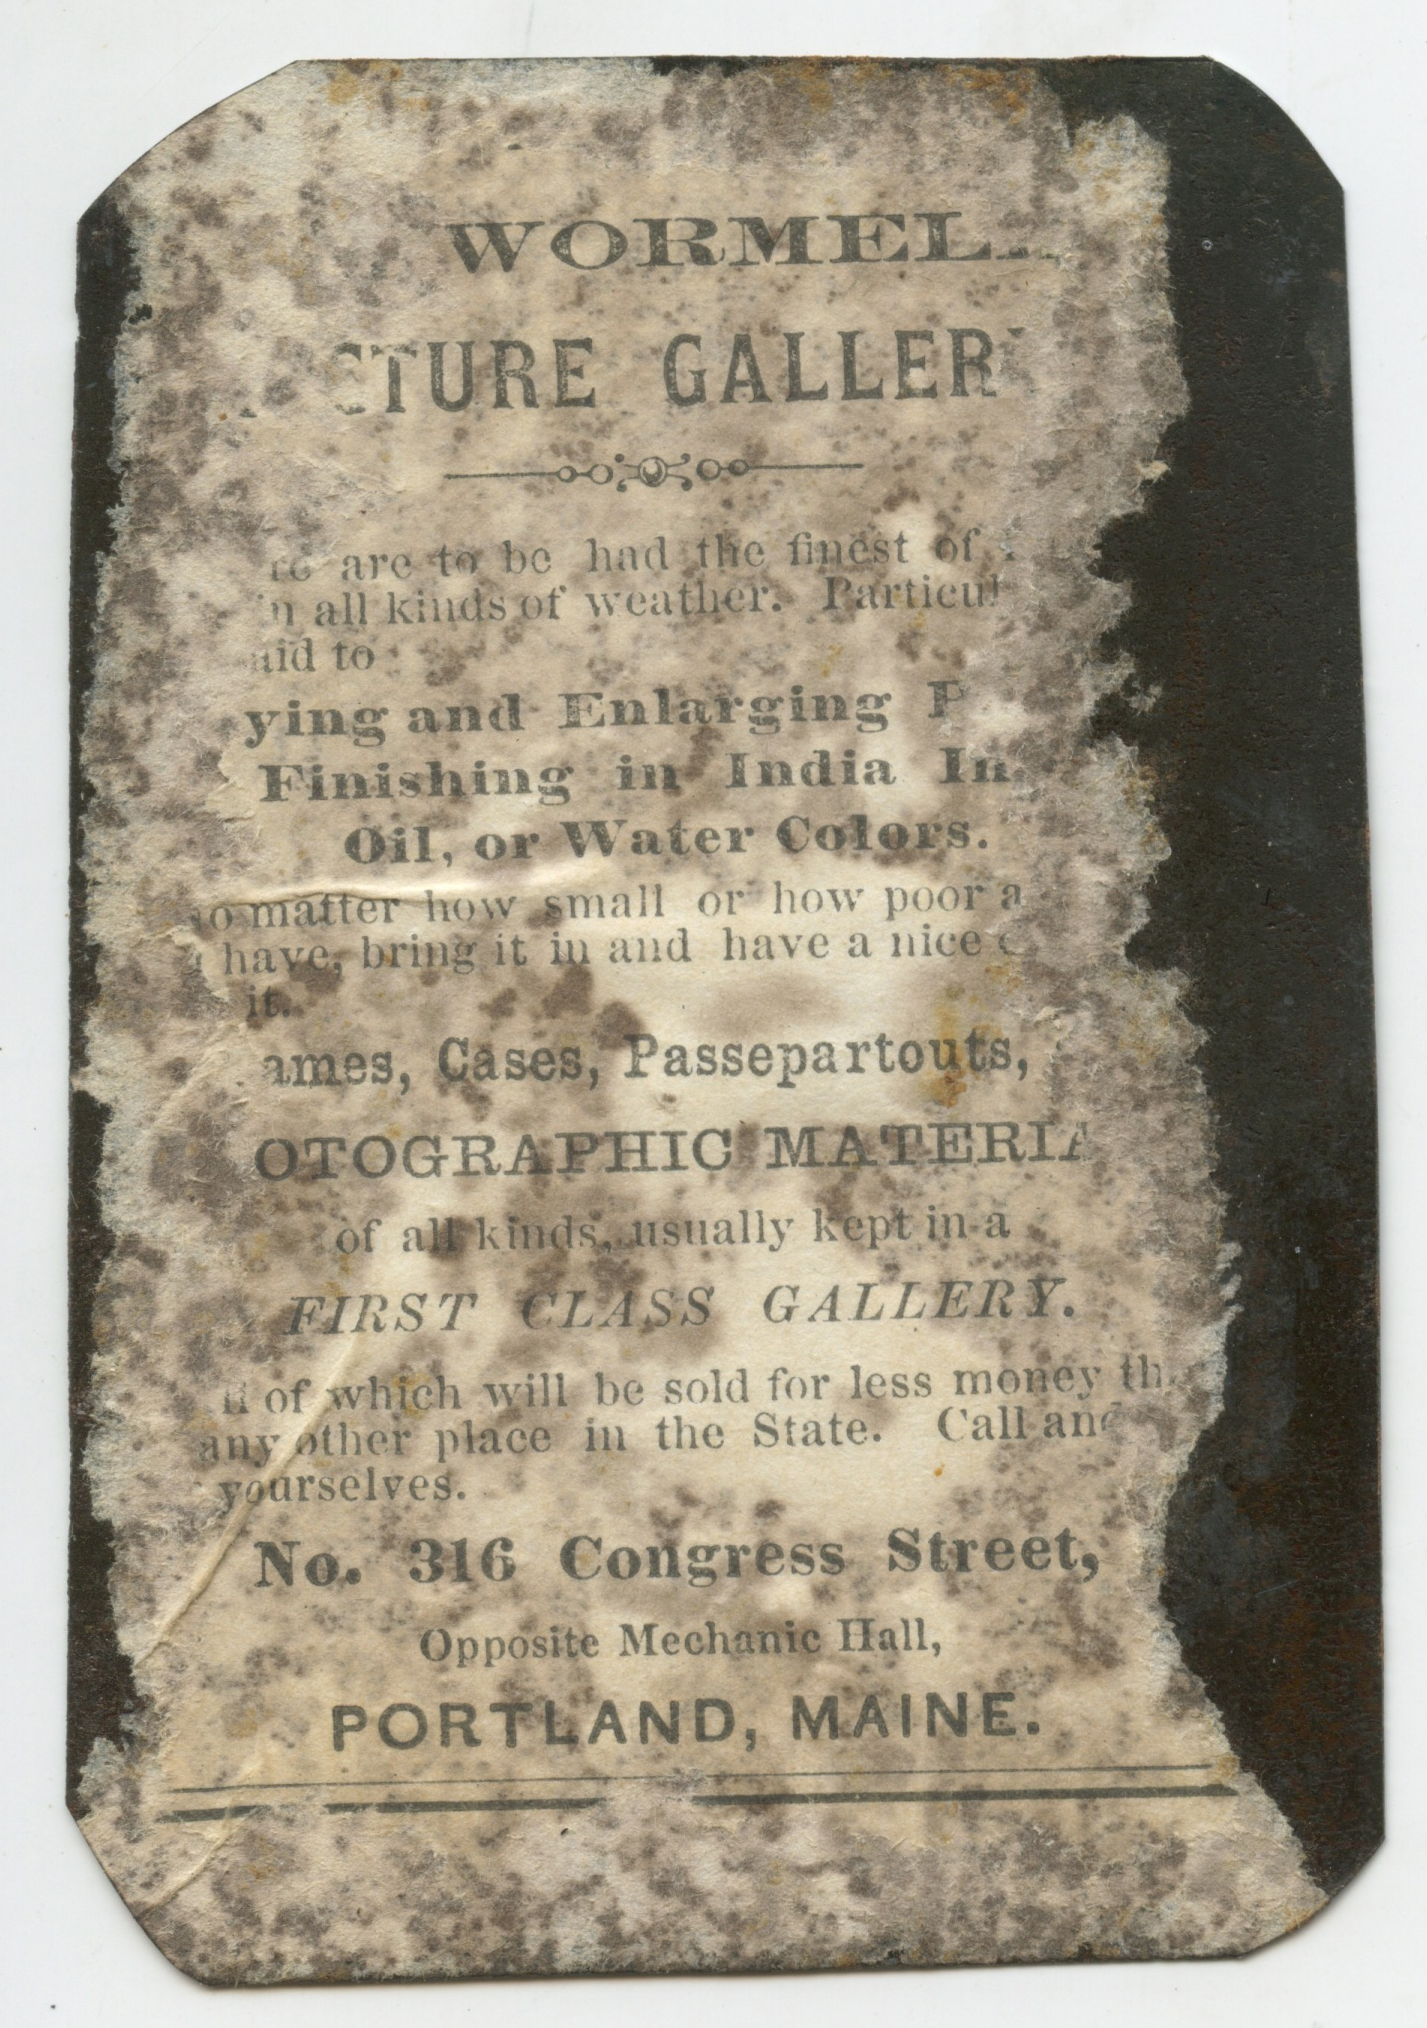 WORMEL
CTURE GALLERY
are to be had the finest of
in all kinds of weather. Particul
aid to
ying and Enlarging P
Finishing in India In
Oil, or Water Colors.
no matter how small or how poor a
have, bring it in and have a nice c
it.
ames, Cases, Passepartouts,
OTOGRAPHIC MATERIA
of all kinds, usually kept in a
FIRST CLASS GALLERY.
ll of which will be sold for less money th
any other place in the State. Call and
yourselves.
No. 316 Congress Street,
Opposite Mechanic Hall,
PORTLAND, MAINE.